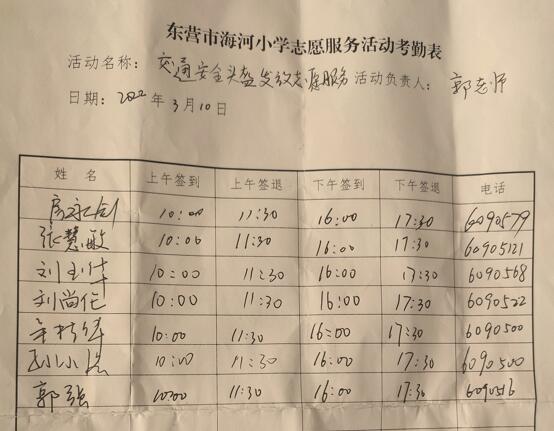 东营市海河小学志愿服务活动考勤表
活动名称：交通安全头盔发放志愿服务 活动负责人：郭老师
日期：2022年3月10日
姓名 上午签到 上午签退 下午签到 下午签退 电话
10:00 11:30 16:00 17:30 6090579
张慧敏 10:00 11:30 16:00 17:30 60905121
10:00 11:30 16:00 17:30 6090568
刘尚伦 10:00 11:30 16:00 17:30 6090522
10:00 11:30 16:00 17:30 6090500
10:00 11:30 16:00 17:30 6090500
郭强 10:00 11:30 16:00 17:30 6090516